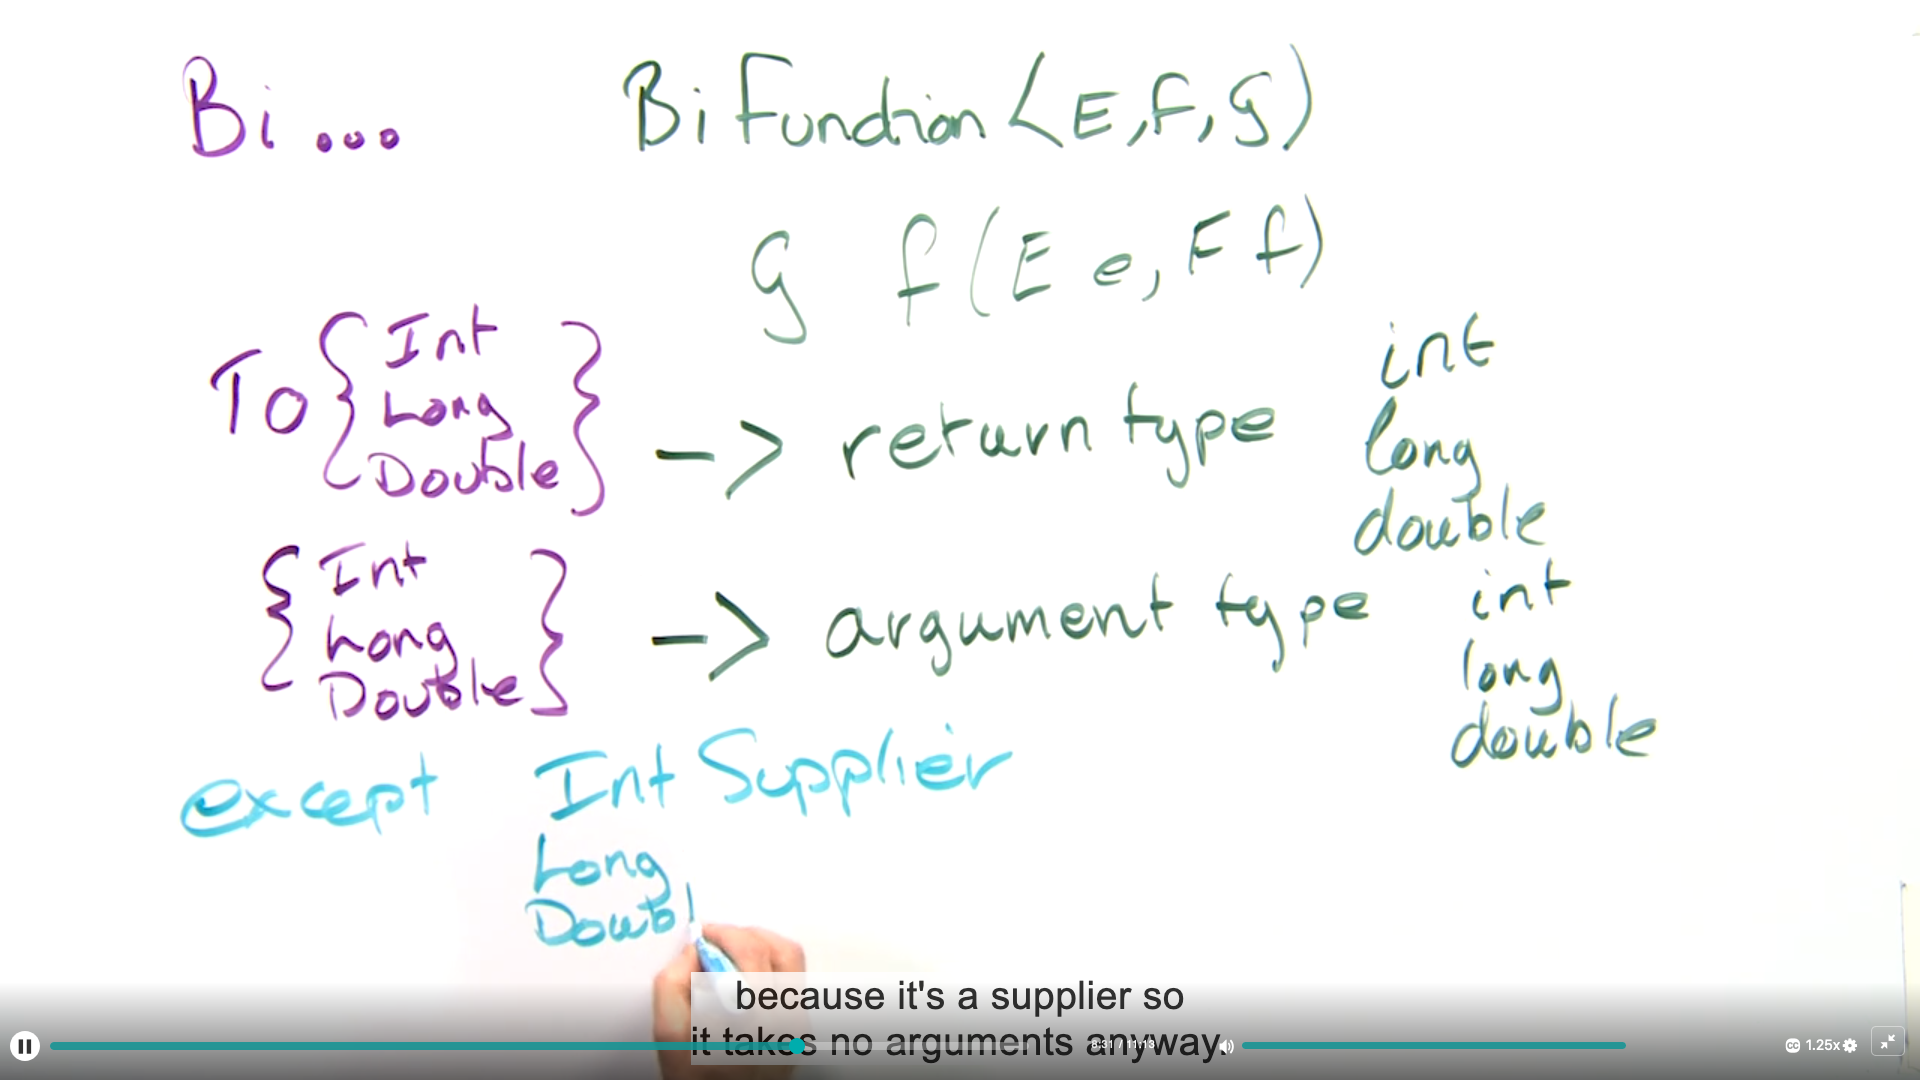 Bi ... BiFunction<E,F,G>
G f(E e, F f)
To { Int Long Double } -> return type int long double
{ Int Long Double } -> argument type int long double
except Int Supplier
Long
Doubl
because it's a supplier so
it takes no arguments anyway.
8:31 / 11:13
CC 1.25x